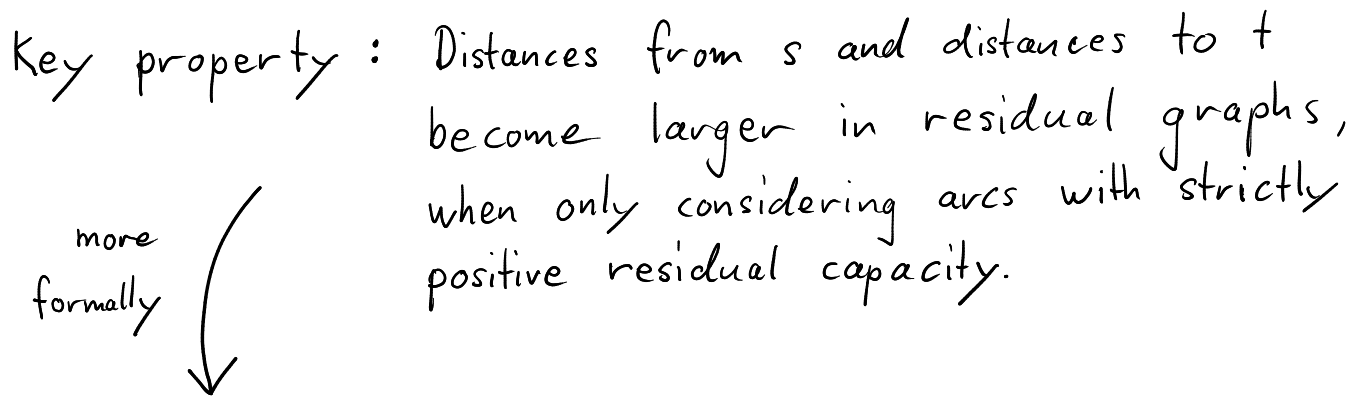 Key property : Distances from s and distances to t
become larger in residual graphs,
when only considering arcs with strictly
positive residual capacity.
more
formally